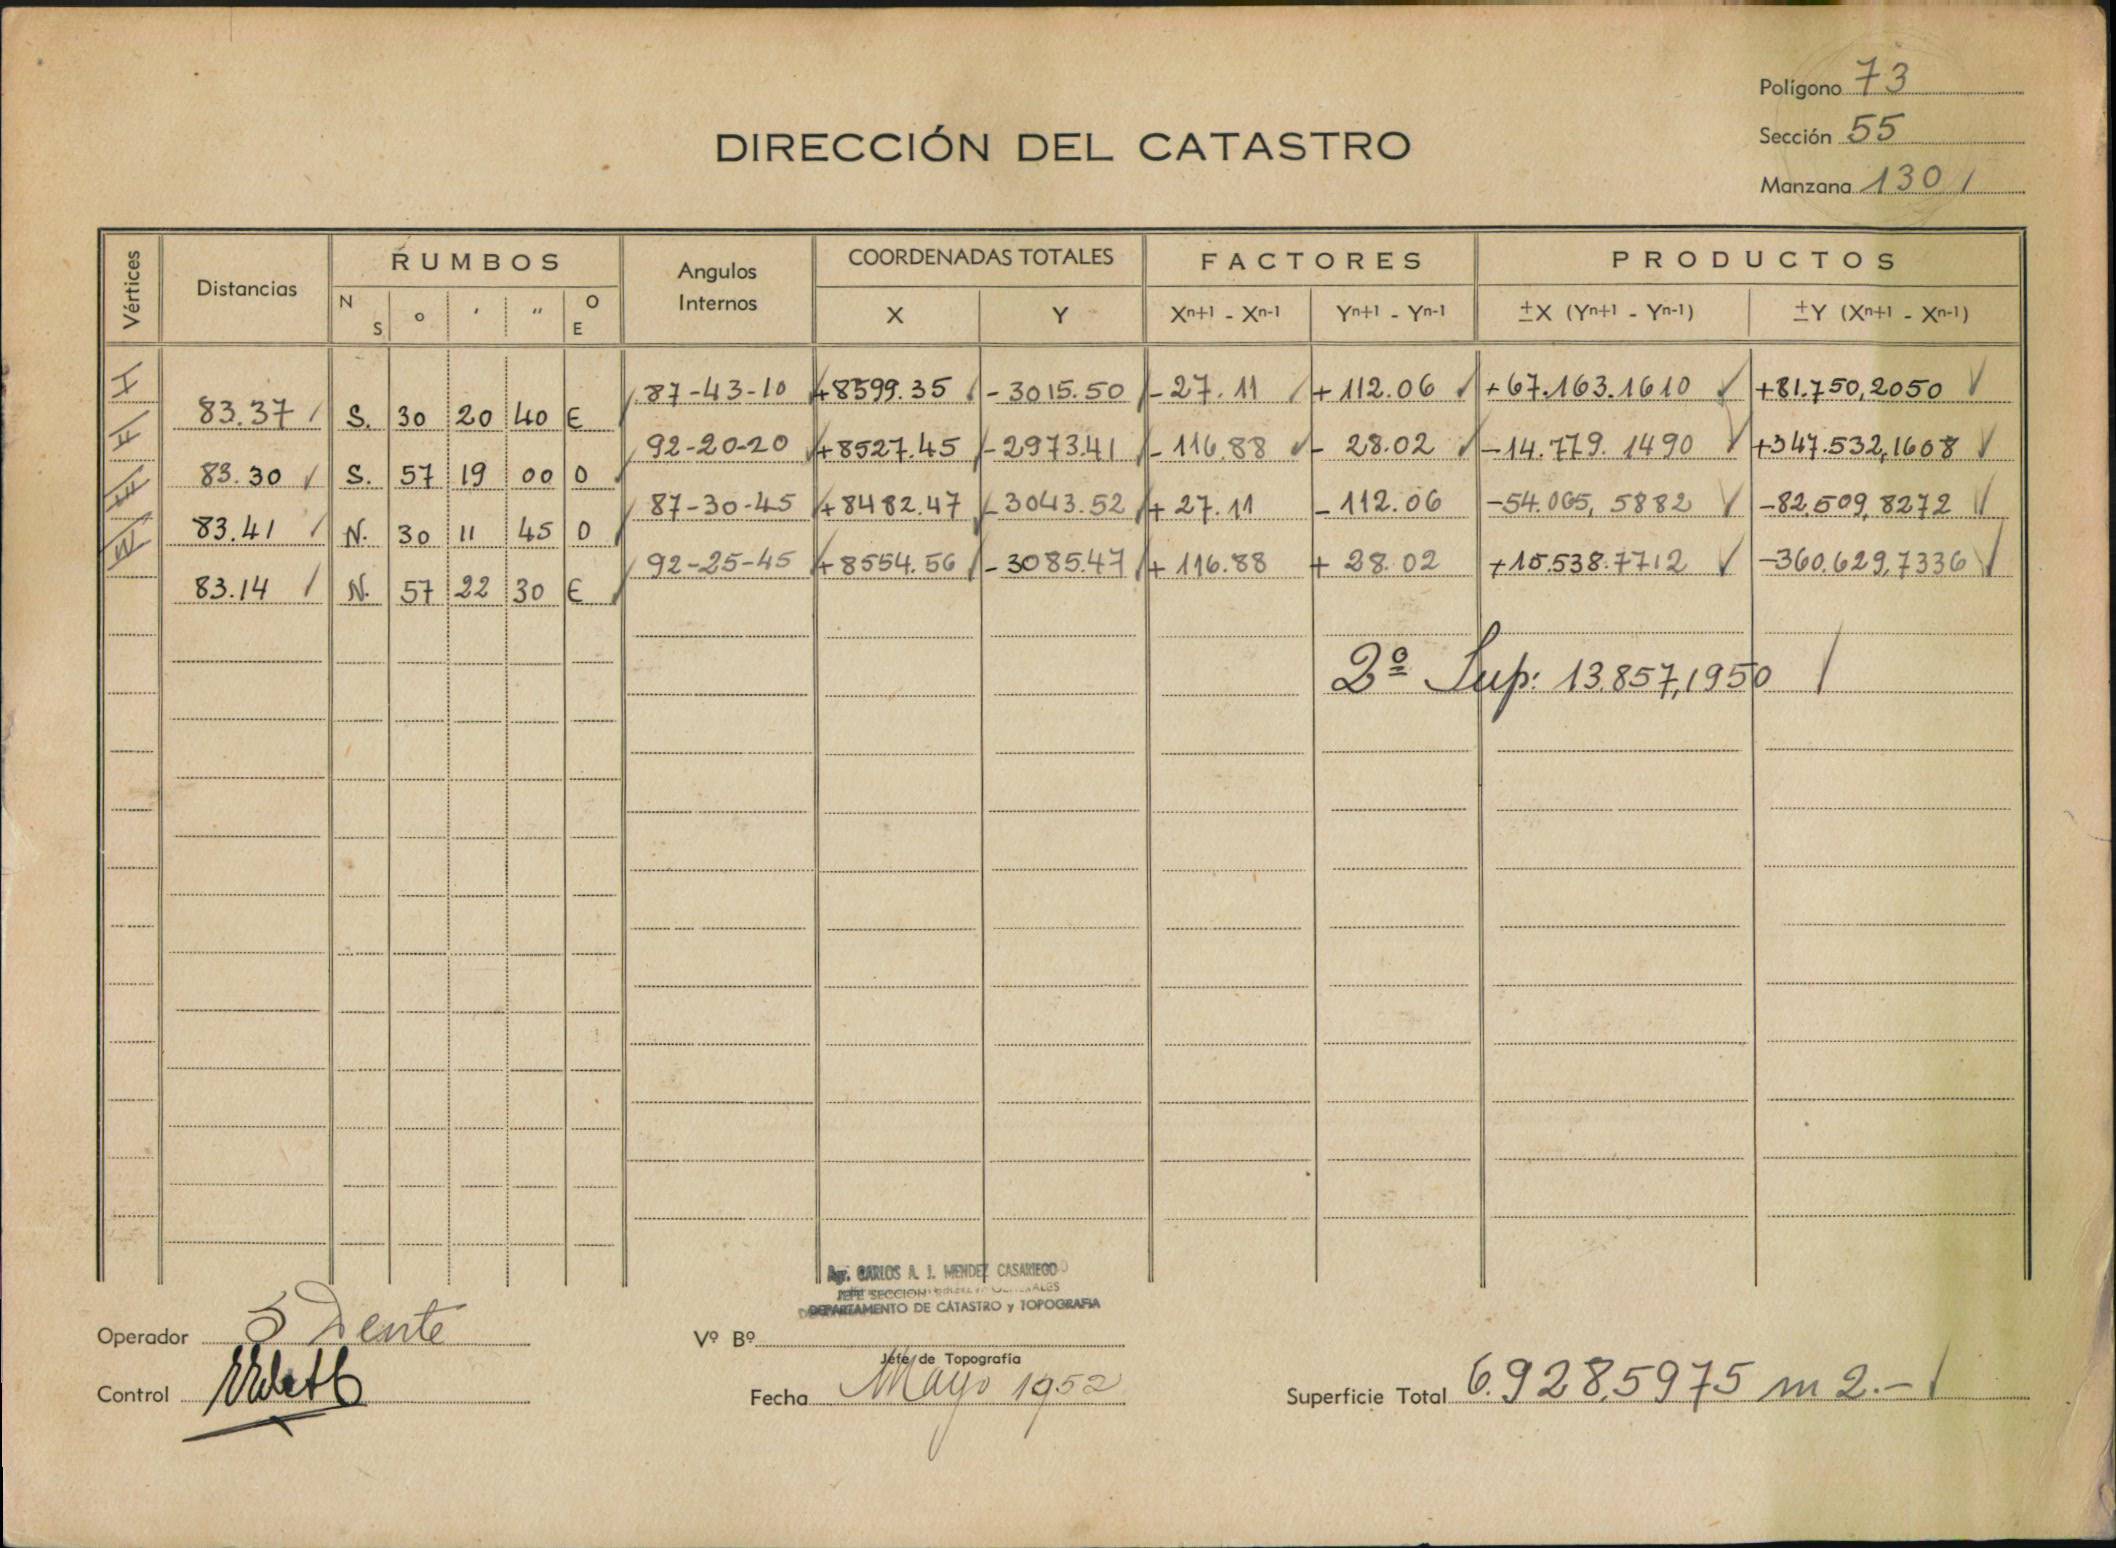 Polígono 73
DIRECCIÓN DEL CATASTRO
Sección 55
Manzana 130
Vértices
Distancias
RUMBOS
N S
o
′
″
O E
Angulos Internos
COORDENADAS TOTALES
X
Y
FACTORES
Xn+1 - Xn-1
Yn+1 - Yn-1
PRODUCTOS
±X (Yn+1 - Yn-1)
±Y (Xn+1 - Xn-1)
I 87-43-10 +8599.35 -3015.50 -27.11 +112.06 +67.163.1610 +81.750,2050
83.37 S. 30 20 40 E
II 92-20-20 +8527.45 -2973.41 -116.88 - 28.02 -14.779.1490 +347.532,1608
83.30 S. 57 19 00 O
III 87-30-45 +8482.47 -3043.52 +27.11 -112.06 -54.065,5882 -82.509,8272
83.41 N. 30 11 45 O
IV 92-25-45 +8554.56 -3085.47 +116.88 +28.02 +15.538.7712 -360.629,7336
83.14 N. 57 22 30 E
2º Sup: 13.857,1950
Agr. CARLOS A. J. MENDEZ CASARIEGO
JEFE SECCION
DEPARTAMENTO DE CATASTRO y TOPOGRAFIA
Operador S Dente
Vº Bº
Jefe de Topografía
Control
Fecha Mayo 1952
Superficie Total 6.928,5975 m 2.-